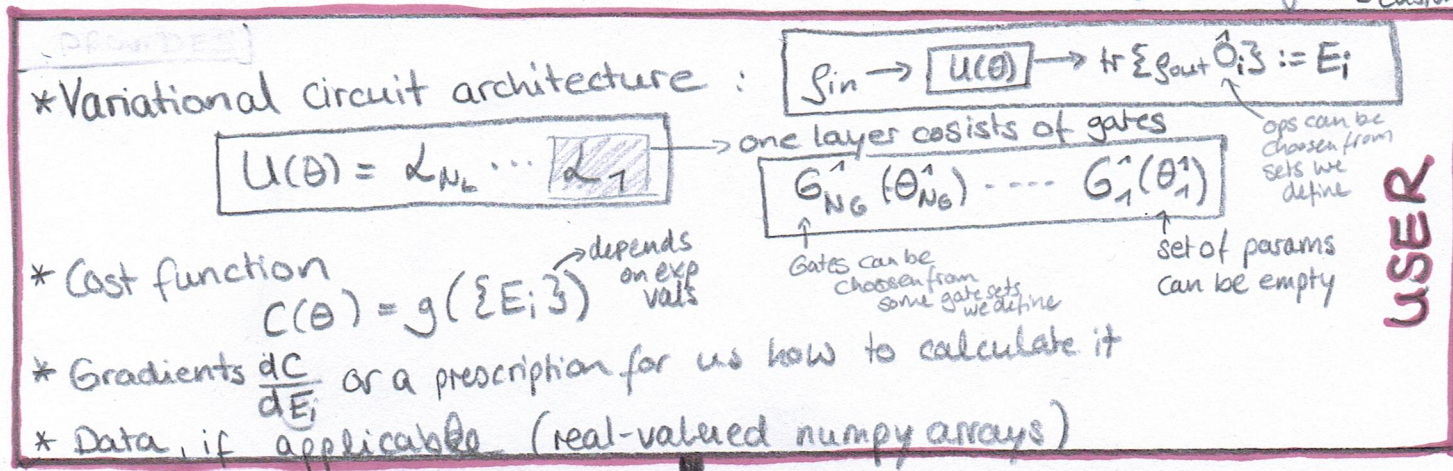 PROVIDES]
*Variational circuit architecture :
ρin → U(θ) → tr{ρout Ôi} := Ei
ops can be
choosen from
sets we
define
U(θ) = ℒNL ··· ℒ1
→ one layer cosists of gates
G^1_NG (θ^1_NG) ----- G^1_1 (θ^1_1)
Gates can be
choosen from
some gate sets
we define
set of params
can be empty
USER
* Cost function
C(θ) = g({Ei})
depends
on exp
vals
* Gradients dC/dEi or a prescription for us how to calculate it
* Data, if applicable (real-valued numpy arrays)